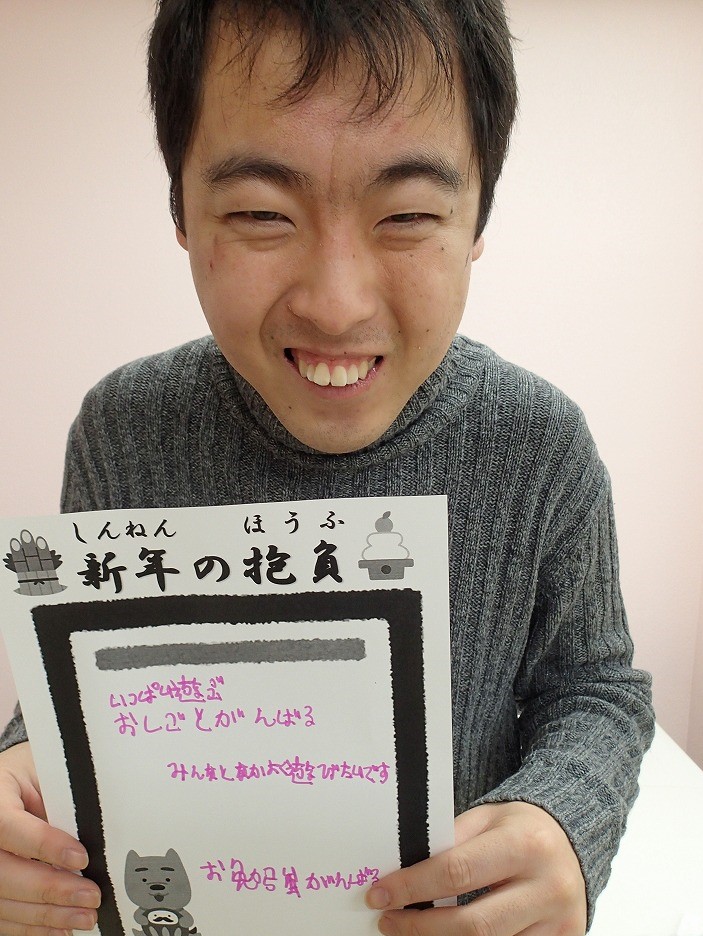 しんねん ほうふ
新年の抱負
いっぱい遊ぶ
おしごとがんばる
みんなとなかよく遊びたいです
お勉強がんばる